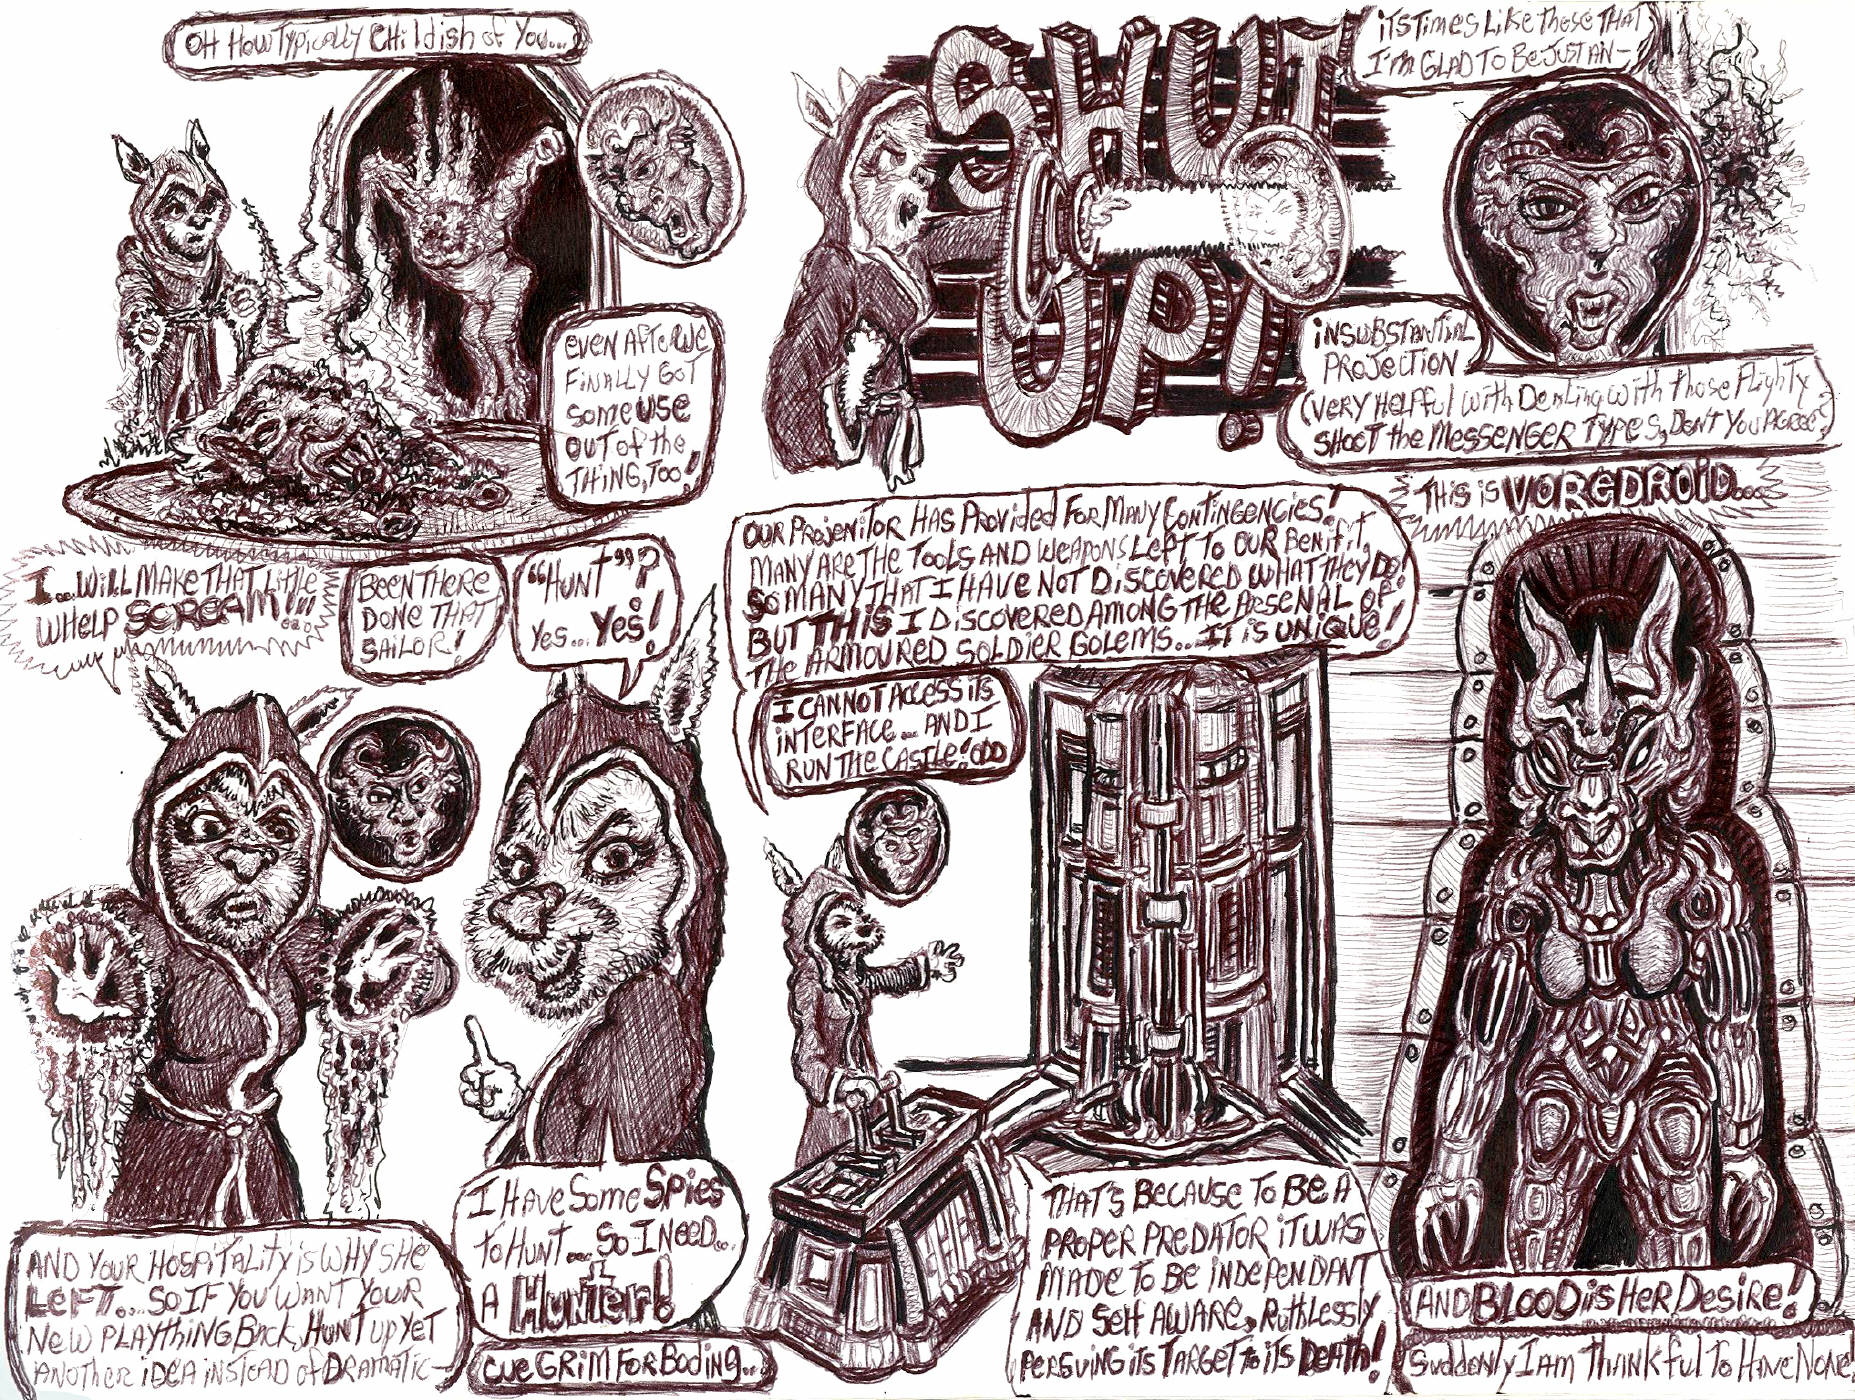 OH HOW TYPICALLY CHILDISH OF YOU...
EVEN AFTER WE
FINALLY GOT
SOME USE
OUT OF THE
THING, TOO!
SHUT
UP!
ITS TIMES LIKE THESE THAT
I'M GLAD TO BE JUST AN—
INSUBSTANTIAL
PROJECTION
(VERY HELPFUL WITH DEALING WITH THOSE FLIGHTY
SHOOT THE MESSENGER TYPES, DON'T YOU AGREE?
I... WILL MAKE THAT LITTLE
WHELP SCREAM!!!...
BEEN THERE
DONE THAT
SAILOR!
AND YOUR HOSPITALITY IS WHY SHE
LEFT.... SO IF YOU WANT YOUR
NEW PLAYTHING BACK, HUNT UP YET
ANOTHER IDEA INSTEAD OF DRAMATIC—
"HUNT"?
YES... YES!
I HAVE SOME SPIES
TO HUNT.... SO I NEED...
A HUNTER!
CUE GRIM FORBODING...
OUR PROJENITOR HAS PROVIDED FOR MANY CONTINGENCIES!
MANY ARE THE TOOLS AND WEAPONS LEFT TO OUR BENIFIT,
SO MANY THAT I HAVE NOT DISCOVERED WHAT THEY DO!
BUT THIS I DISCOVERED AMONG THE ARSENAL OF
THE ARMOURED SOLDIER GOLEMS... IT IS UNIQUE!
I CANNOT ACCESS ITS
INTERFACE... AND I
RUN THE CASTLE! ODD
THAT'S BECAUSE TO BE A
PROPER PREDATOR IT WAS
MADE TO BE INDEPENDANT
AND SELF AWARE, RUTHLESSLY
PERSUING ITS TARGET TO ITS DEATH!
THIS IS VOREDROID....
AND BLOOD IS HER DESIRE!
SUDDENLY I AM THANKFUL TO HAVE NONE!